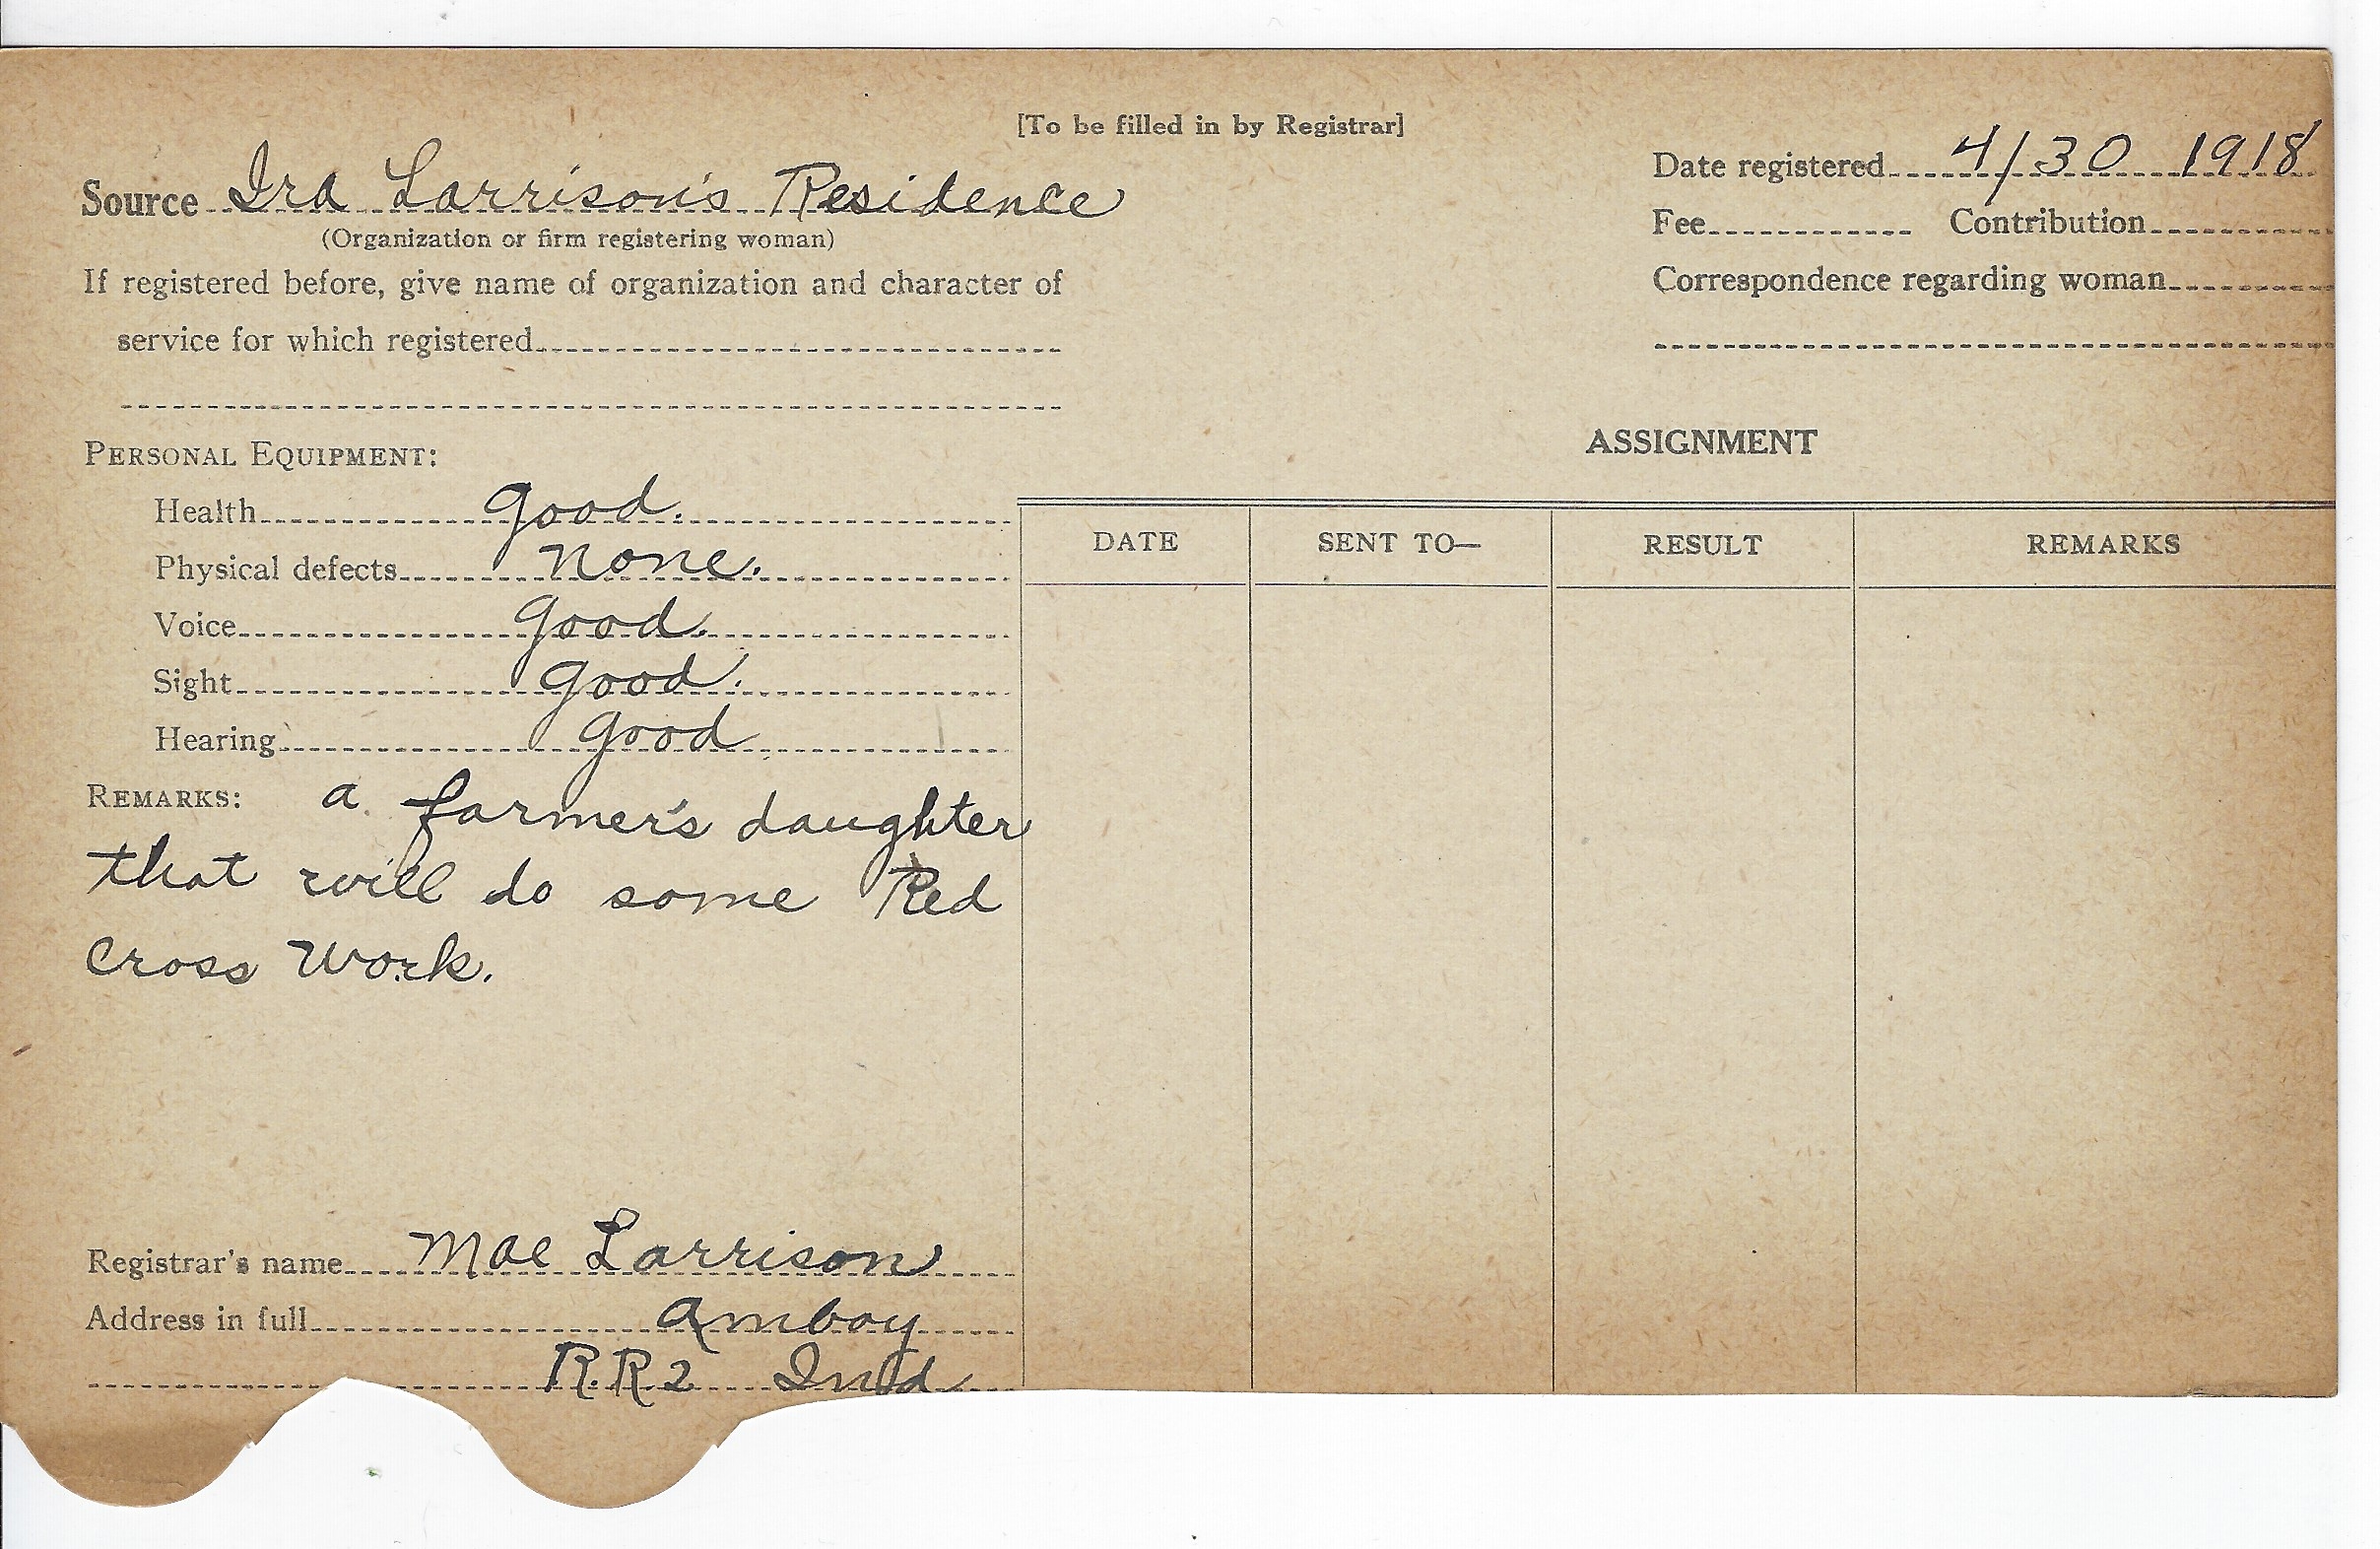 [To be filled in by Registrar]
Source Ira Larrison's Residence
(Organization or firm registering woman)
If registered before, give name of organization and character of
service for which registered
Date registered 4/30 1918
Fee Contribution
Correspondence regarding woman
PERSONAL EQUIPMENT:
Health good.
Physical defects none.
Voice good.
Sight good.
Hearing good
REMARKS: a farmer's daughter
that will do some Red
Cross Work.
Registrar's name Mae Larrison
Address in full Amboy
R.R 2 Ind
ASSIGNMENT
DATE SENT TO— RESULT REMARKS